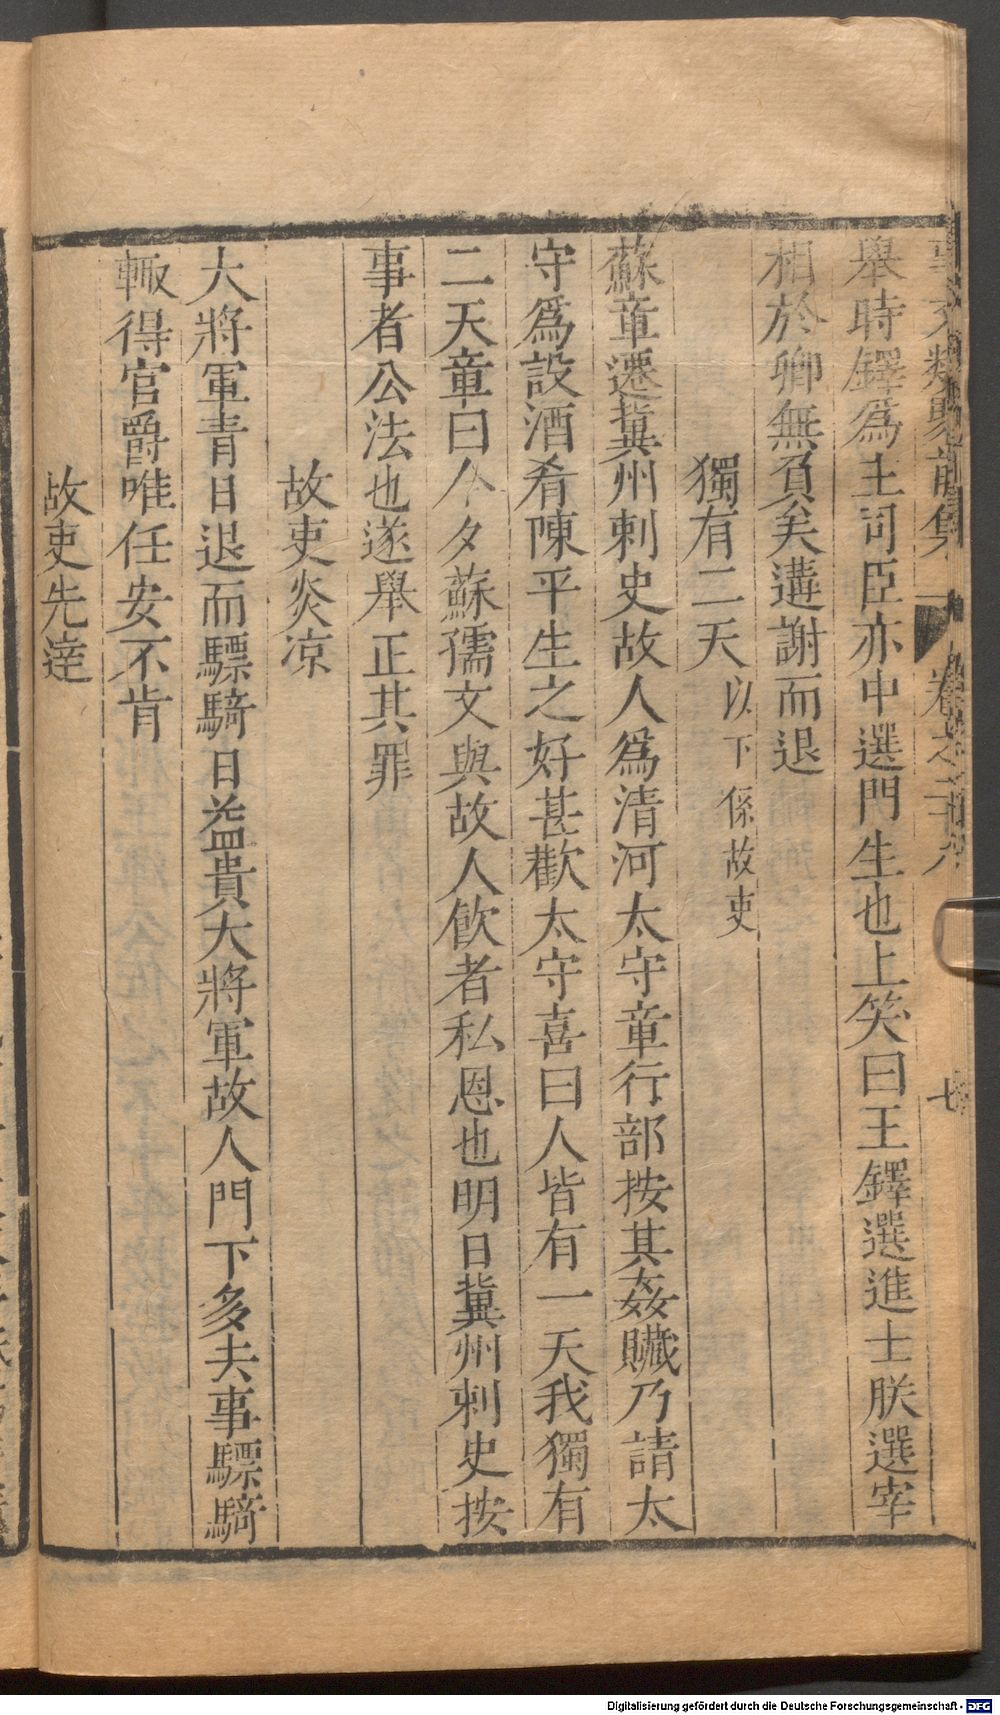 事文類聚前集 卷之二十八 七
舉時鐸爲主司臣亦中選門生也上笑曰王鐸選進士朕選宰
相於卿無負矣遘謝而退
獨有二天 以下係故吏
蘇章遷冀州刺史故人爲清河太守章行部按其姦贓乃請太
守爲設酒肴陳平生之好甚歡太守喜曰人皆有一天我獨有
二天章曰今夕蘇孺文與故人飮者私恩也明日冀州刺史按
事者公法也遂舉正其罪
故吏炎凉
大將軍青日退而驃騎日益貴大將軍故人門下多去事驃騎
輙得官爵唯任安不肯
故吏先達
Digitalisierung gefördert durch die Deutsche Forschungsgemeinschaft - DFG